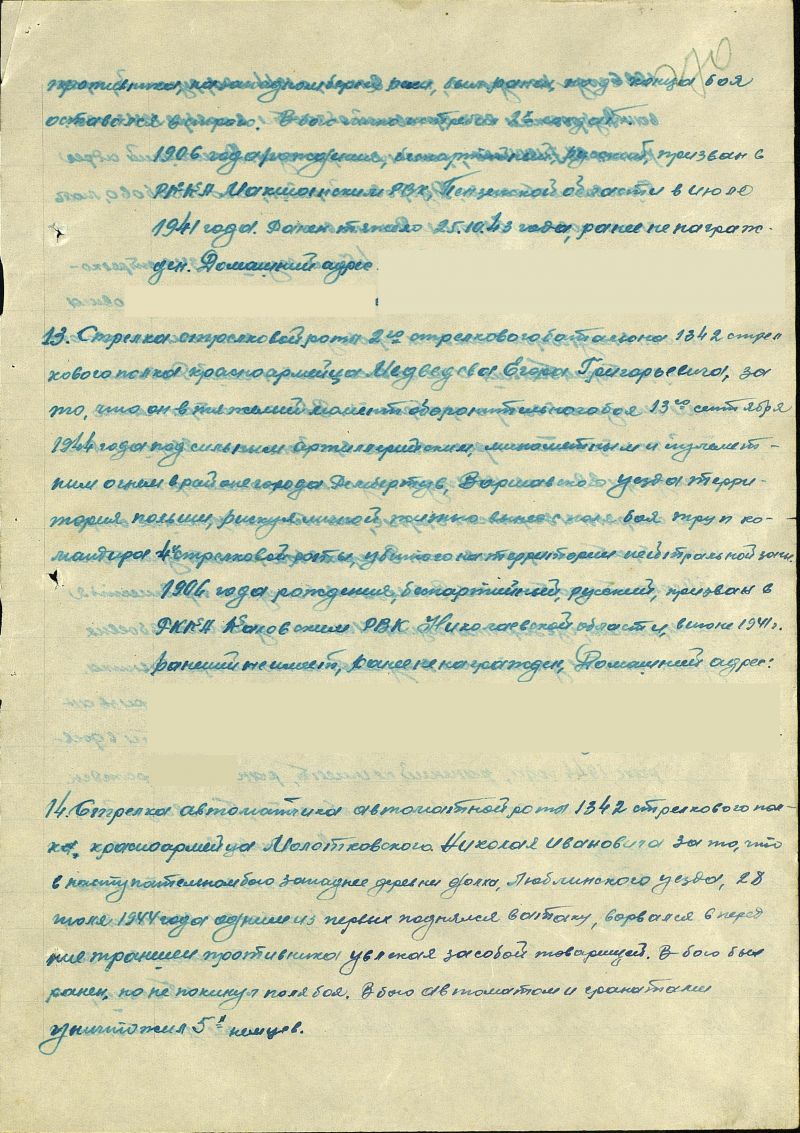 270
противника, на западном берегу реки, был ранен, но до конца боя
оставался в строю. В бою
1906 года рождения, беспартийный, русский, призван в
РККА Макшанским РВК Пензенской области в июле
1941 года. Ранен тяжело 25.10.43 года, ранее не награж-
ден. Домашний адрес
13. Стрелка стрелковой роты 2го стрелкового батальона 1342 стрел
кового полка красноармейца Медведева Егора Григорьевича, за
то, что он в тяжелый момент оборонительного боя 13го сентября
1944 года под сильным артиллерийским, минометным и пулемет-
ным огнем в районе города Рембертув, Варшавского уезда терри-
тория польши, рискуя личной жизнью вынес с поля боя труп ко-
мандира 4й стрелковой роты, убитого на территории нейтральной зоны.
1906 года рождения, беспартийный, русский, призван в
РККА РВК Николаевской области, в июне 1941 г.
ранений не имеет, ранее не награжден, Домашний адрес:
14. Стрелка автоматчика автоматной роты 1342 стрелкового пол-
ка, красноармейца Молотковского Николая Ивановича за то, что
в наступательном бою западнее деревни Люблинского уезда, 28
июля 1944 года одним из первых поднялся в атаку, ворвался в перед
ние траншеи противника увлекая за собой товарищей. В бою был
ранен, но не покинул поля боя. В бою автоматом и гранатами
уничтожил 5х немцев.